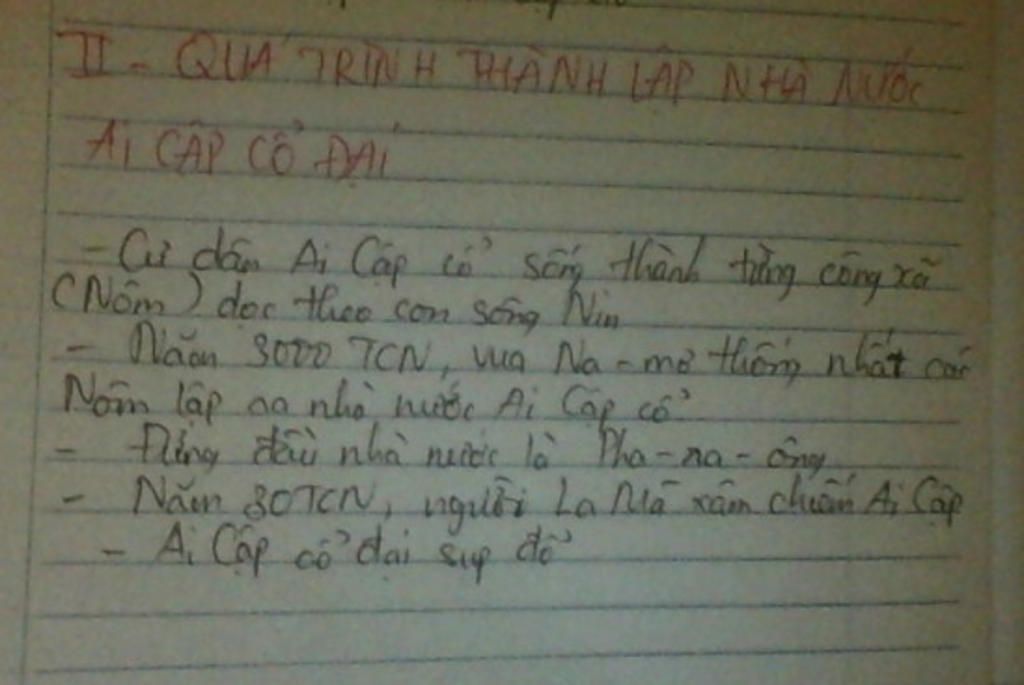 II - QUÁ TRÌNH THÀNH LẬP NHÀ NƯỚC
AI CẬP CỔ ĐẠI
- Cư dân Ai Cập cổ sống thành từng công xã
(Nôm) dọc theo con sông Nin
- Năm 3000 TCN, vua Na-mơ thống nhất các
Nôm lập ra nhà nước Ai Cập cổ
- Đứng đầu nhà nước là Pha-ra-ông
- Năm 30TCN, người La Mã xâm chiếm Ai Cập
- Ai Cập cổ đại sụp đổ